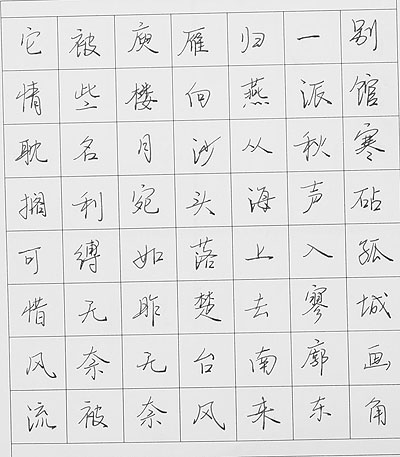 别馆寒砧孤城画角
一派秋声入寥廓东
归燕从海上去南来
雁向沙头落楚台风
庾楼月宛如昨无奈
被些名利缚无奈被
它情耽搁可惜风流